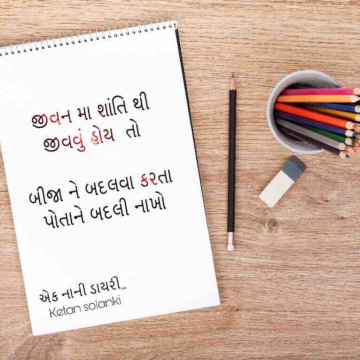 જીવન મા શાંતિ થી
જીવવું હોય તો
બીજા ને બદલવા કરતા
પોતાને બદલી નાખો
એક નાની ડાયરી...
Ketan solanki